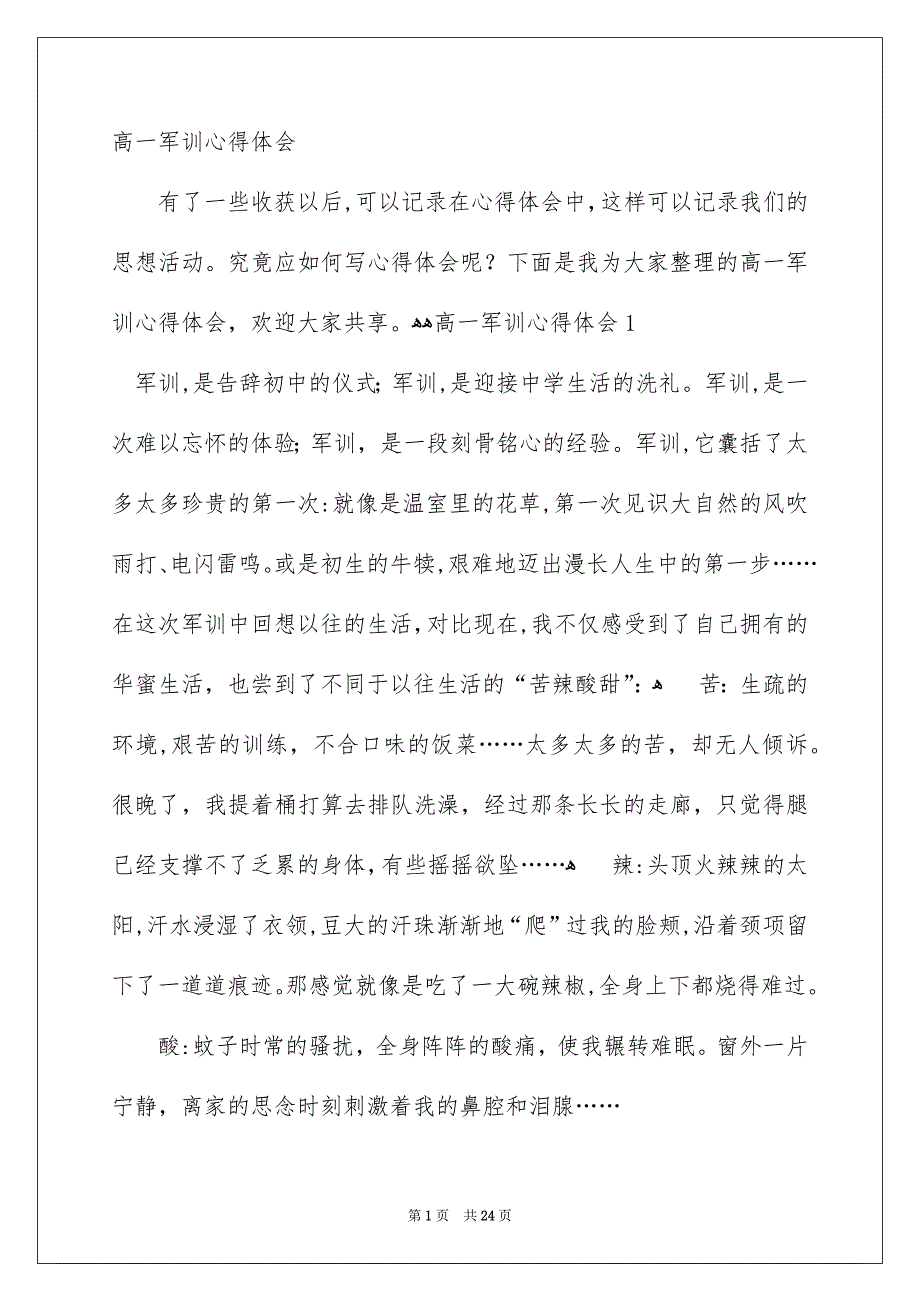 高一军训心得体会
有了一些收获以后,可以记录在心得体会中,这样可以记录我们的
思想活动。究竟应如何写心得体会呢？下面是我为大家整理的高一军
训心得体会，欢迎大家共享。ﻫﻫ高一军训心得体会1
军训,是告辞初中的仪式；军训,是迎接中学生活的洗礼。军训,是一
次难以忘怀的体验；军训，是一段刻骨铭心的经验。军训,它囊括了太
多太多珍贵的第一次:就像是温室里的花草,第一次见识大自然的风吹
雨打、电闪雷鸣。或是初生的牛犊,艰难地迈出漫长人生中的第一步……
在这次军训中回想以往的生活，对比现在,我不仅感受到了自己拥有的
华蜜生活，也尝到了不同于以往生活的“苦辣酸甜”：ﻫ 苦：生疏的
环境,艰苦的训练，不合口味的饭菜……太多太多的苦，却无人倾诉。
很晚了，我提着桶打算去排队洗澡，经过那条长长的走廊，只觉得腿
已经支撑不了乏累的身体,有些摇摇欲坠……ﻫ 辣:头顶火辣辣的太
阳,汗水浸湿了衣领,豆大的汗珠渐渐地“爬”过我的脸颊,沿着颈项留
下了一道道痕迹。那感觉就像是吃了一大碗辣椒,全身上下都烧得难过。
酸:蚊子时常的骚扰，全身阵阵的酸痛，使我辗转难眠。窗外一片
宁静，离家的思念时刻刺激着我的鼻腔和泪腺……
第 1 页 共 24 页